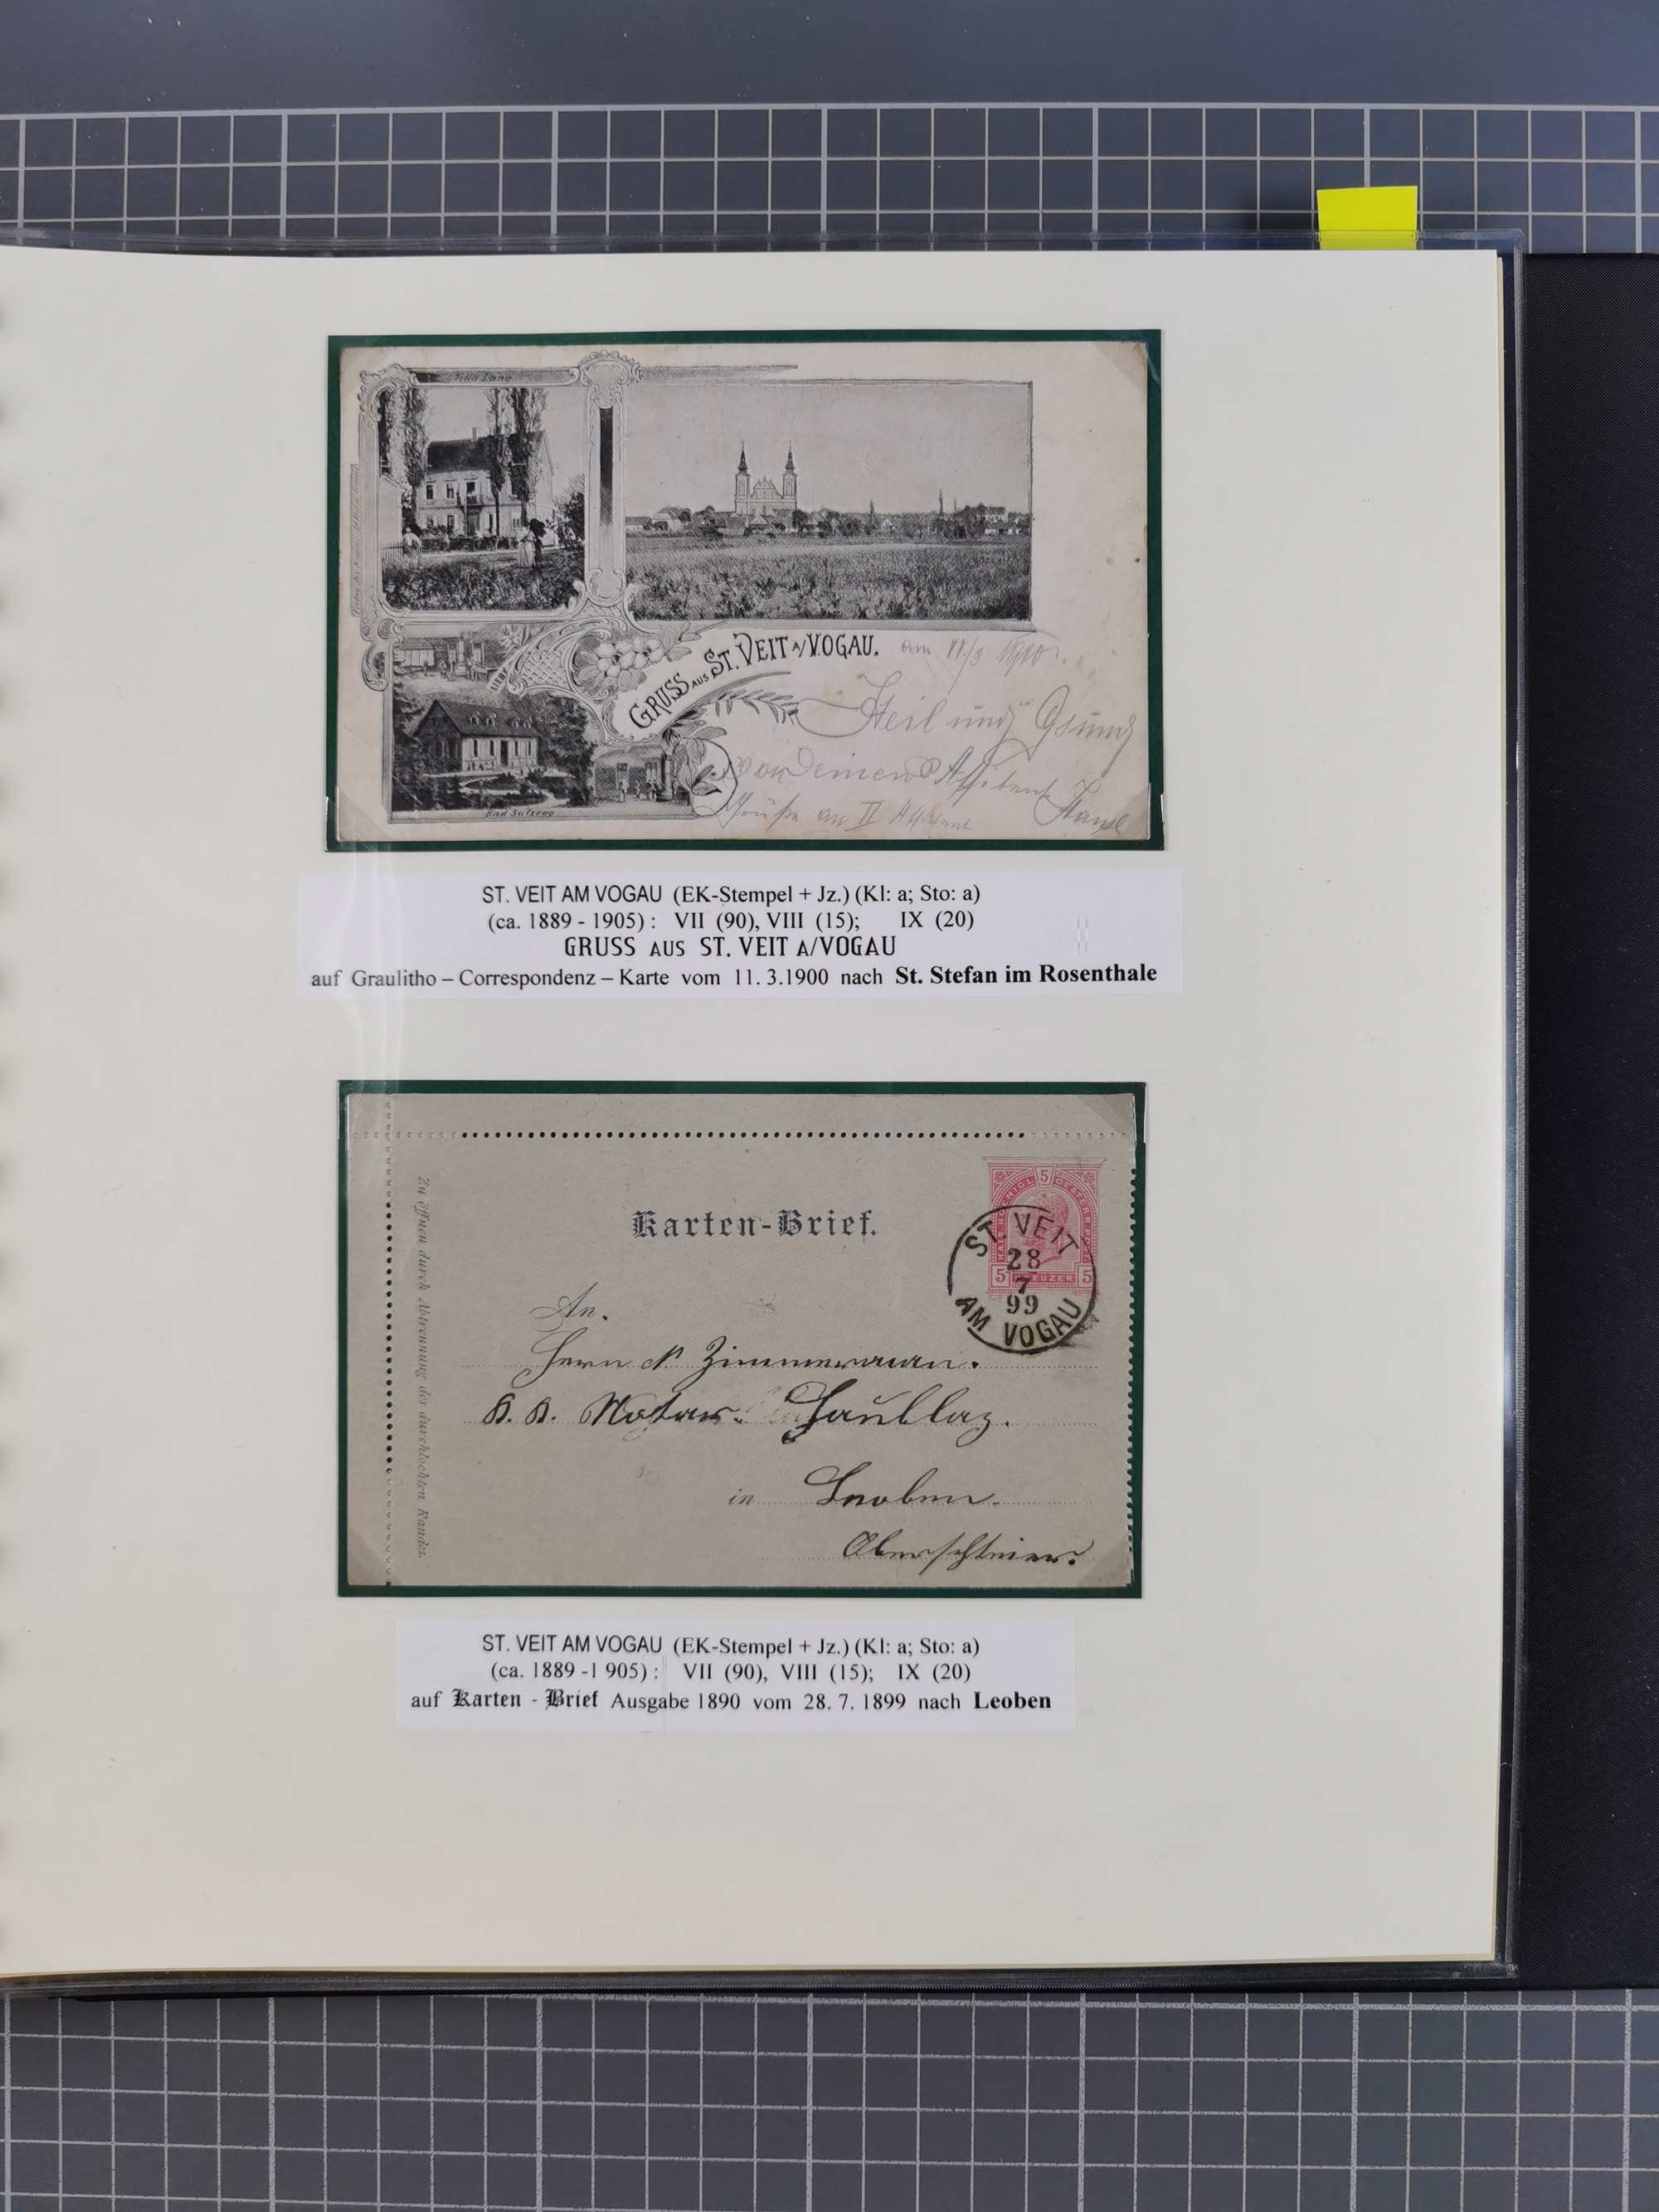 Villa Lang
GRUSS AUS ST. VEIT A/VOGAU.
am 11./3 1900.
Heil und Gsund
von Deinem
Grüße an II
Bad Sulzegg
ST. VEIT AM VOGAU (EK-Stempel + Jz.) (Kl: a; Sto: a)
(ca. 1889 - 1905) : VII (90), VIII (15); IX (20)
GRUSS AUS ST. VEIT A/VOGAU
auf Graulitho – Correspondenz – Karte vom 11. 3.1900 nach St. Stefan im Rosenthale
Zu öffnen durch Abtrennung des durchlochten Randes.
Karten-Brief.
KAIS. KOENIGL. 5 OESTERR. POST
5 KREUZER 5
ST. VEIT
28
7
99
AM VOGAU
An.
Herrn N. Zimmermann.
K. K. Notar.
in Leoben.
Obersteier.
ST. VEIT AM VOGAU (EK-Stempel + Jz.) (Kl: a; Sto: a)
(ca. 1889 -1 905) : VII (90), VIII (15); IX (20)
auf Karten - Brief Ausgabe 1890 vom 28. 7. 1899 nach Leoben